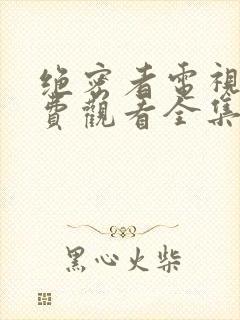 绝密者電視
費觀看全集
黑心火柴